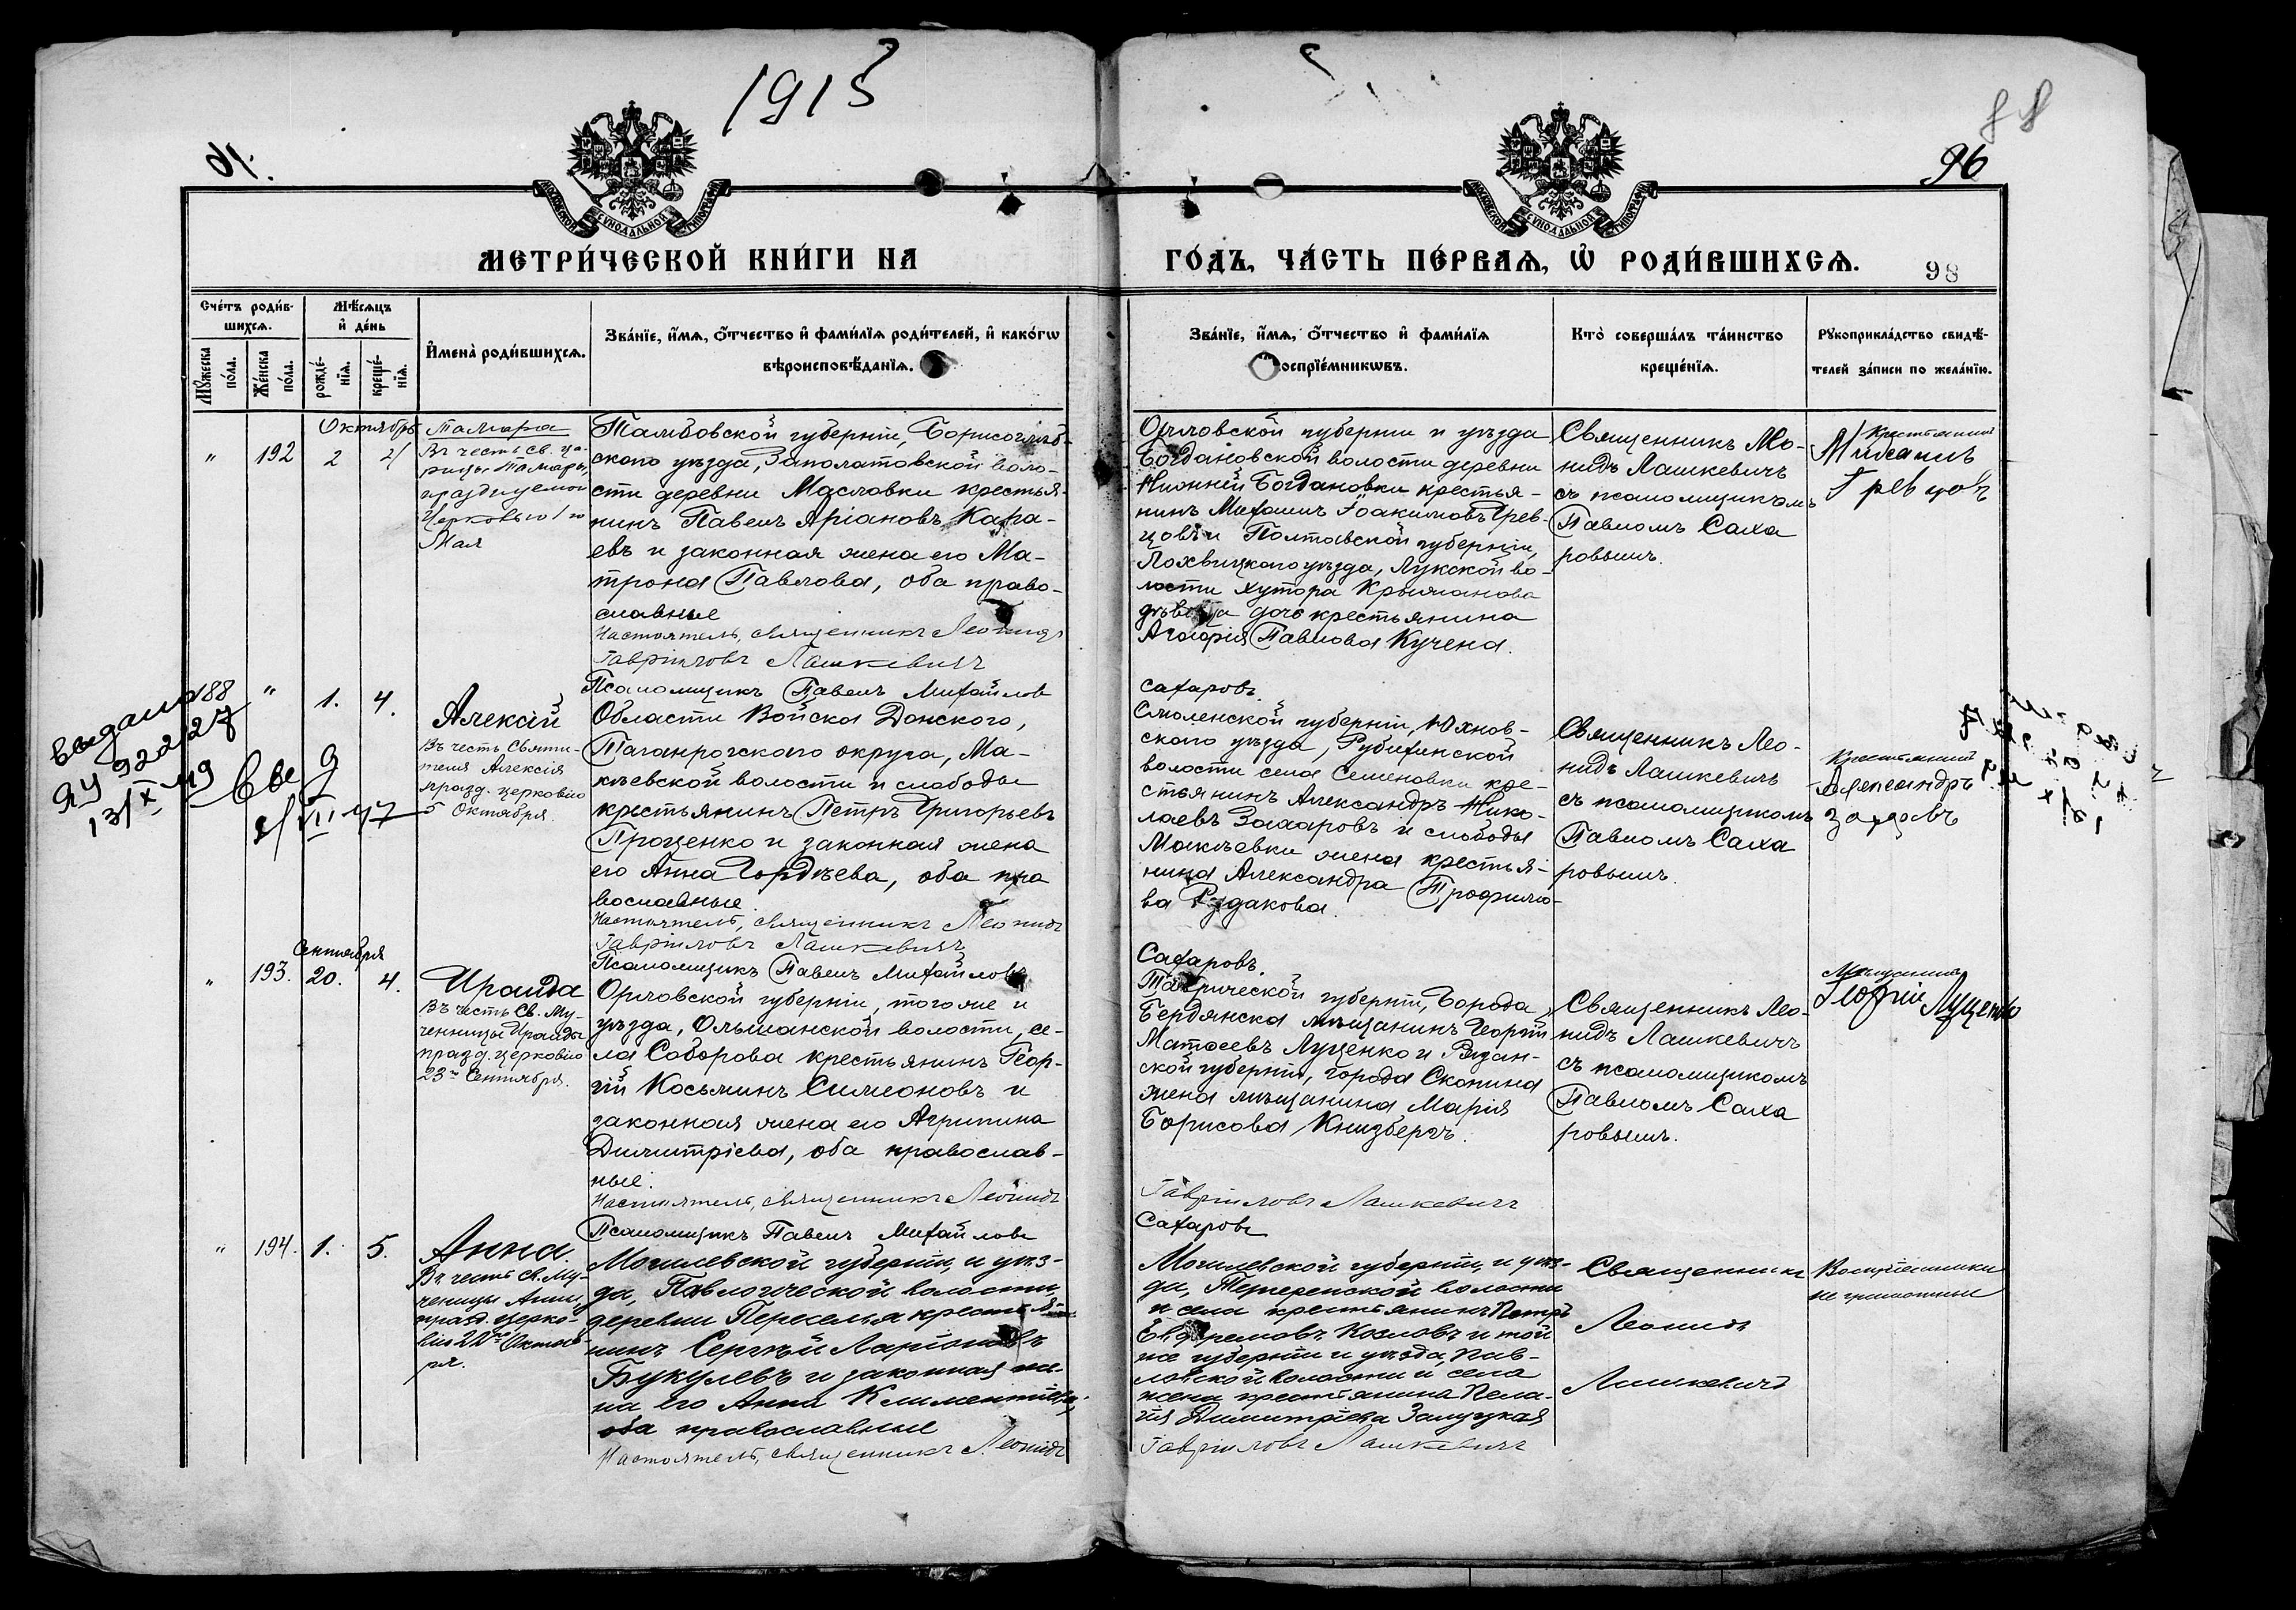 1915
96
88
МЕТРИ́ЧЕСКОЙ КНИ́ГИ НА
ГО́ДЪ, ЧА́СТЬ ПЕ́РВАѦ, Ѡ РОДИ́ВШИХСѦ.
98
Сче́тъ роди́в-
шихсѧ.
Мꙋ́жеска по́ла.
Же́нска по́ла.
Мѣ́сѧцъ
и҆ де́нь
рожде́-
нїѧ.
креще́-
нїѧ.
И҆мена̀ роди́вшихсѧ.
Зва́нїе, и҆́мѧ, ѻ҆́тчество и҆ фами́лїѧ роди́телей, и҆ како́гѡ
вѣроисповѣ́данїѧ.
Зва́нїе, и҆́мѧ, ѻ҆́тчество и҆ фами́лїѧ
воспрїе́мникѡвъ.
Кто̀ соверша́лъ та́инство
креще́нїѧ.
Рꙋкоприкла́дство свидѣ́-
телей за́писи по жела́нїю.
"
192
Октябрь
2
2
Тамара
Въ честь св. ца-
рицы Тамары,
празднуемой
Церковью 1го
Мая
Тамбовской губернiи, Борисоглѣб-
скаго уѣзда, Заполатовской воло-
сти деревни Масловки крестья-
нинъ Павелъ Арiановъ Кара-
евъ и законная жена его Ма-
трона Павлова, оба право-
славные
Настоятель, священникъ Леонидъ
Гаврiиловъ Лашкевичъ
Псаломщикъ Павелъ Михайловъ
Орловской губернiи и уѣзда
Богдановской волости деревни
Нижней Богдановки крестья-
нинъ Михаилъ Iоакимовъ Грев-
цовъ и Полтавской губернiи,
Лохвицкаго уѣзда, Лукской во-
лости хутора Крыжанова
дѣвица дочь крестьянина
Павлова Кучена.
Сахаровъ.
Священникъ Ло-
нидъ Лашкевичъ
съ псаломщикомъ
Павломъ Саха
ровымъ.
Крестьянинъ
Михаилъ
Гревцовъ
выдано
ЯУ 922227
13/X 49
8/VII-47
188
"
1.
4.
Алексiй
Въ честь Святи-
теля Алексiя
празд. церковiю
5 Октября.
Области Войска Донского,
Таганрогскаго округа, Ма-
кѣевской волости и слободы
крестьянинъ Петръ Григорьевъ
Проценко и законная жена
его Анна Гордѣева, оба пра
вославные.
Настоятель, священникъ Леонидъ
Гаврiиловъ Лашкевичъ
Псаломщикъ Павелъ Михайловъ
Смоленской губернiи, Юхнов-
скаго уѣзда, Рубихинской
волости села Семеновки кре-
стьянинъ Александръ Нико-
лаевъ Захаровъ и слободы
Макѣевки жена крестья-
нина Александра Трофимо-
ва Рудакова.
Сахаровъ.
Священникъ Лео-
нидъ Лашкевичъ
съ псаломщикомъ
Павломъ Саха
ровымъ.
Крестьянинъ
Александръ
"
193.
Сентября
20.
4.
Ираида
Въ честь Св. Му-
ченницы Ираиды
празд. церковiю
23го Сентября.
Орловской губернiи, того же и
уѣзда, Ольшанской волости, се-
ла Соборова крестьянинъ Геор-
гiй Косьминъ Симеоновъ и
законная жена его Агрипина
Димитрiева, оба православ-
ные.
Настоятель, священникъ Леонидъ
Псаломщикъ Павелъ Михайловъ
Таврической губернiи, города
Бердянска мѣщанинъ Георгiй
Матѳеевъ Луценко и Рязан-
ской губернiи, города Скопина
жена мѣщанина Марiя
Борисова Книзбергъ.
Гаврiиловъ Лашкевичъ
Сахаровъ
Священникъ Лео-
нидъ Лашкевичъ
съ псаломщикомъ
Павломъ Саха
ровымъ.
Мѣщанинъ
Георгiй Луценко
"
194.
1.
5.
Анна.
Въ честь св. Му-
ченицы Анны,
празд. церко-
вiю 22го Октяб-
ря.
Могилевской губернiи, и уѣз-
да, Павловической волости,
деревни Переселья крестья-
нинъ Сергѣй Ларiоновъ
Букулевъ и законная же-
на его Анна Климентiева,
оба православные
Настоятель, священникъ Леонидъ
Могилевской губернiи, и уѣз-
да, волости
и села крестьянинъ Петръ
Евфремовъ Козловъ и той
же губернiи и уѣзда, Пав-
ловской волости и села
жена крестьянина Пела-
гiя Димитрiева Залуцкая
Гаврiиловъ Лашкевичъ
Священникъ
Леонидъ
Лашкевичъ
Воспрiемники
не грамотные